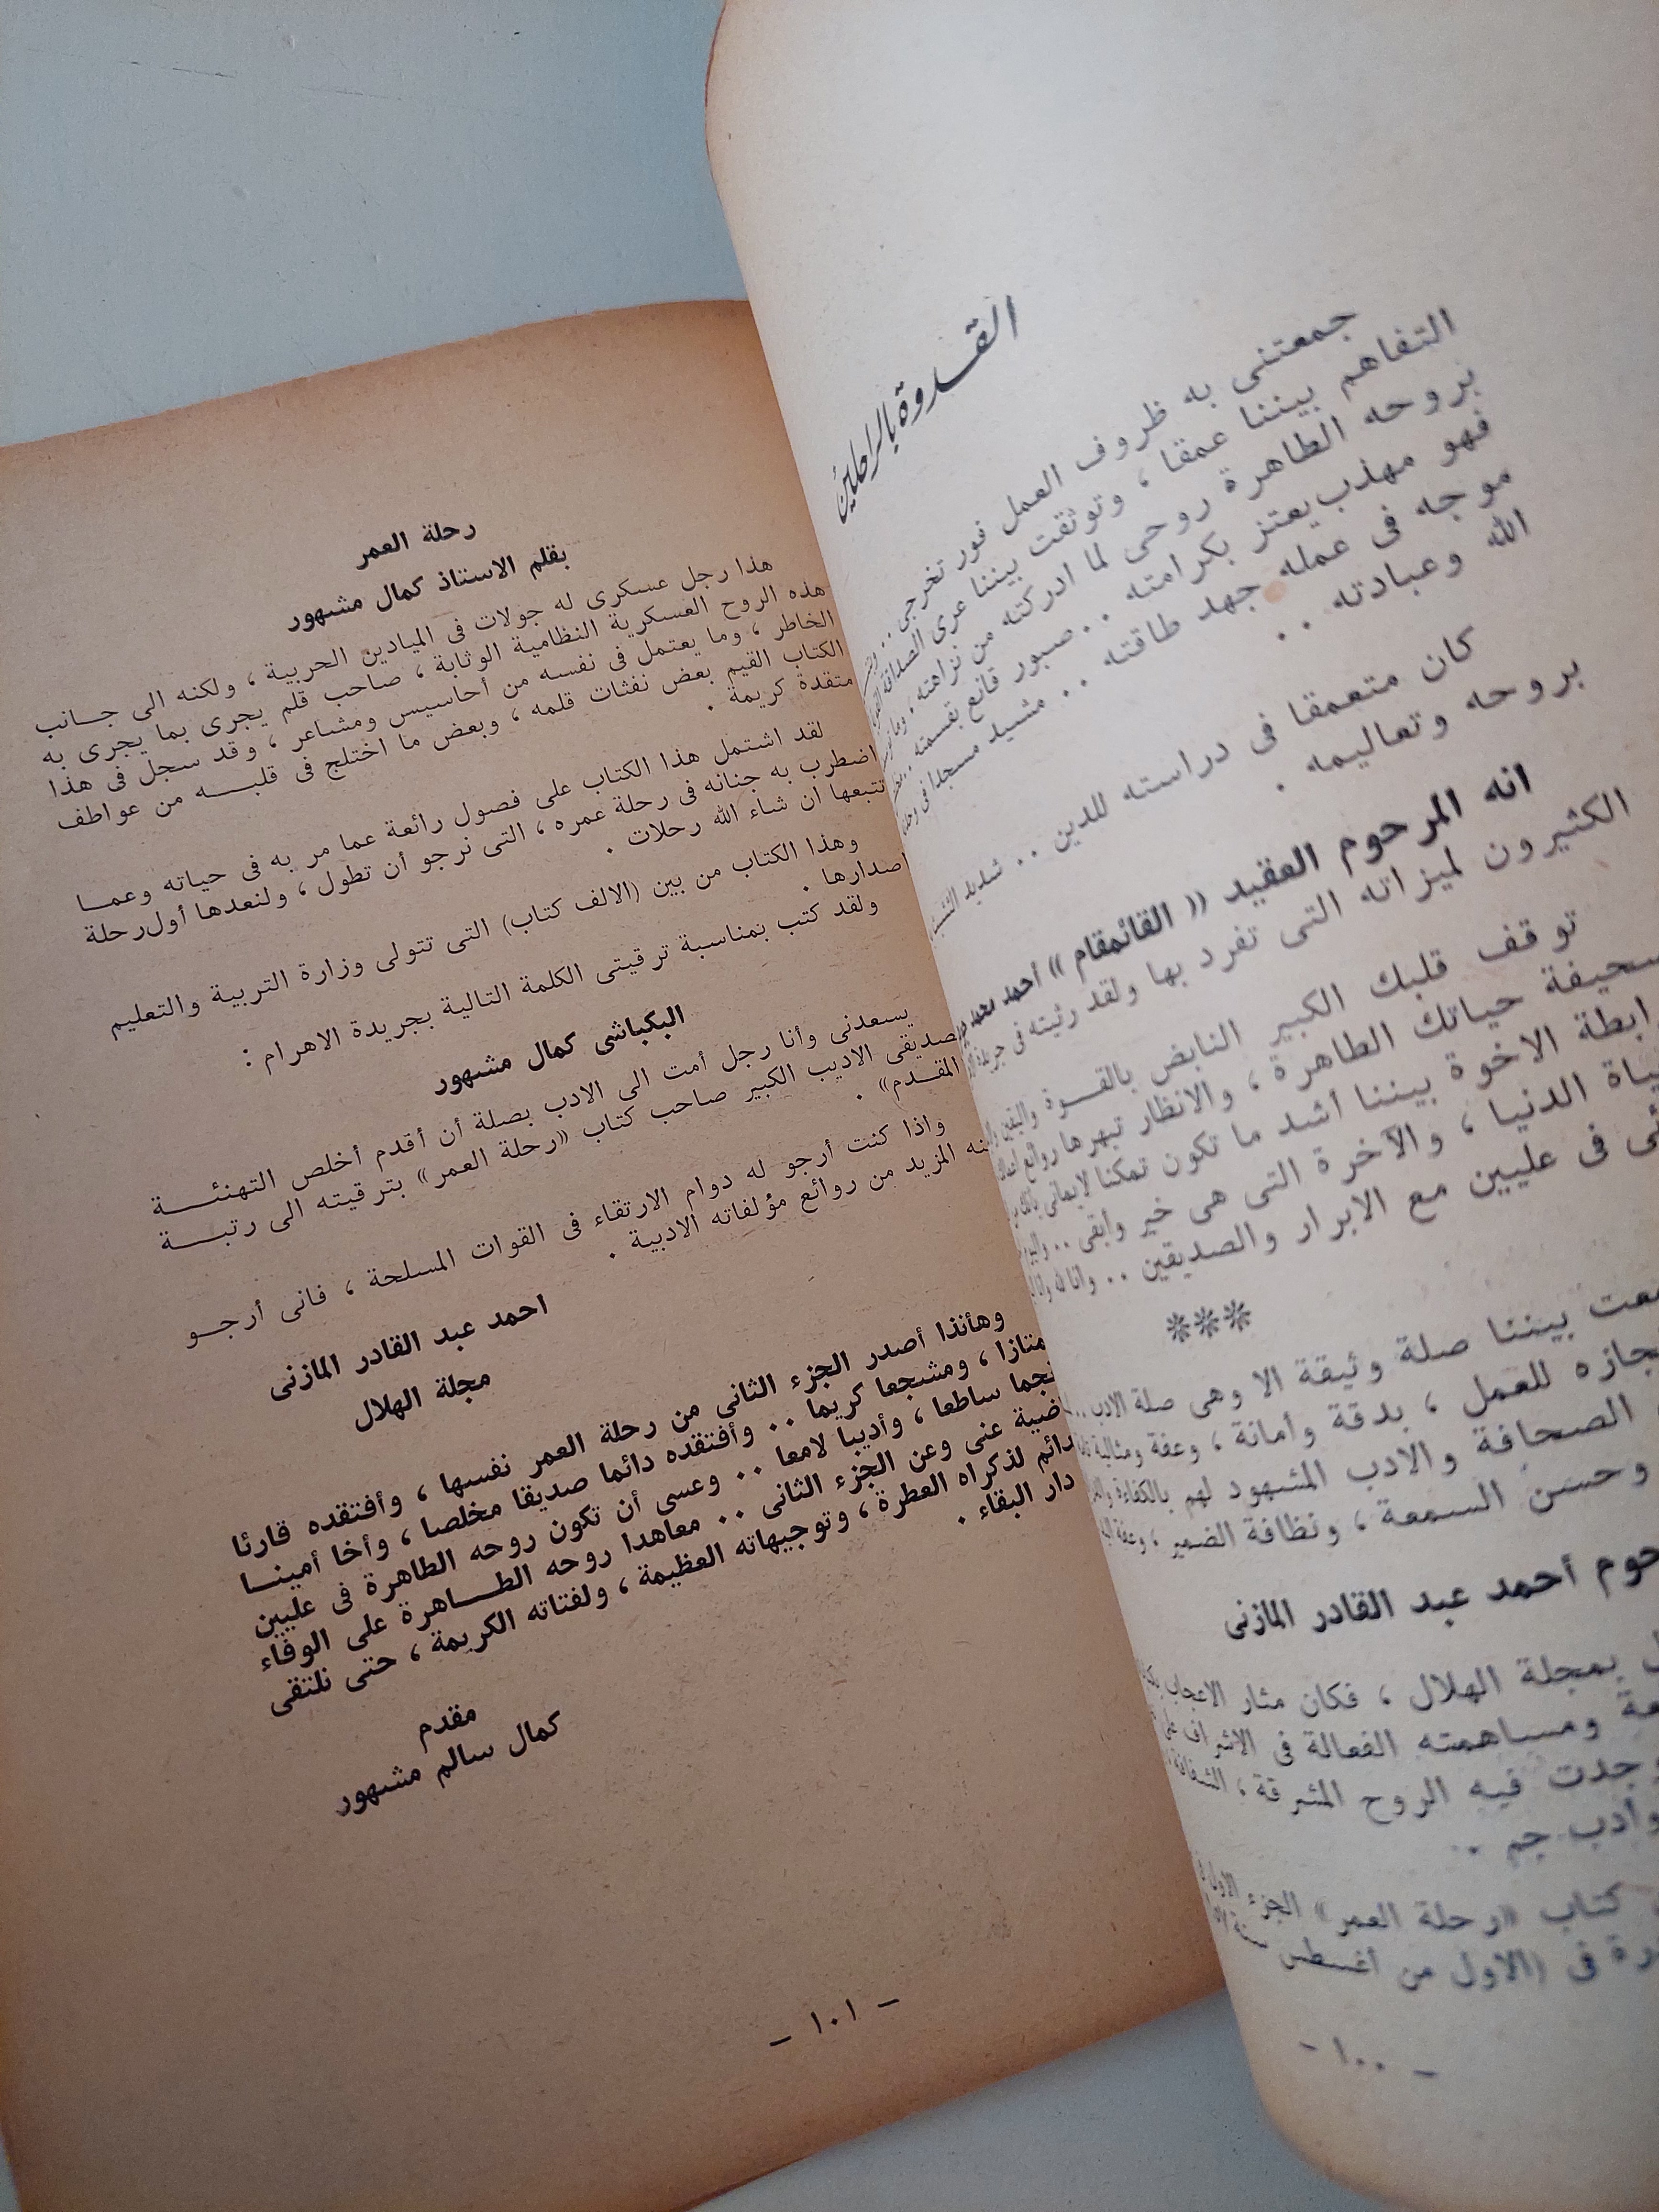 القدوة بالراحلين
جمعتنى به ظروف العمل فور تخرجى ..
التفاهم بيننا عمقا ، وتوثقت بيننا عرى الصداقة
بروحه الطاهرة روحى لما ادركته من نزاهته ،
فهو مهذب يعتز بكرامته .. صبور قانع بقسمته ..
موجه فى عمله جهد طاقته .. مشيد مسجلا فى
الله وعبادته ..
كان متعمقا فى دراسته للدين .. شديد
بروحه وتعاليمه .
انه المرحوم العقيد (( القائمقام )) أحمد محمد
الكثيرون لميزاته التى تفرد بها ولقد رئيته فى جريدة
توقف قلبك الكبير النابض بالقـوة واليقين
حياتك الطاهرة ، والانظار تبهرها روائع
الاخوة بيننا أشد ما تكون تمكنا لإيمانى
الدنيا ، والآخرة التى هى خير وأبقى ..
فى عليين مع الابرار والصديقين .. وانا لله وانا
***
بيننا صلة وثيقة الا وهى صلة الادب ..
للعمل ، بدقة وأمانة ، وعفة ومثالية
الصحافة والادب المشهود لهم بالكفاءة
وحسن السمعة ، ونظافة الضمير ، وعفة
أحمد عبد القادر المازنى
بمجلة الهلال ، فكان مثار الاعجاب
ومساهمته الفعالة فى الاشراف على
وجدت فيه الروح المشرقة ، الشفافة
وأدب جم .
كتاب «رحلة العمر» الجزء الاول
فى (الاول من أغسطس سنة
- ١٠٠ -
رحلة العمر
بقلم الاستاذ كمال مشهور
هذا رجل عسكرى له جولات فى الميادين الحربية ، ولكنه الى جـانب
هذه الروح العسكرية النظامية الوثابة ، صاحب قلم يجرى بما يجرى به
الخاطر ، وما يعتمل فى نفسه من أحاسيس ومشاعر ، وقد سجل فى هذا
الكتاب القيم بعض نفثات قلمه ، وبعض ما اختلج فى قلبـــه من عواطف
متقدة كريمة .
لقد اشتمل هذا الكتاب على فصول رائعة عما مر به فى حياته وعمـا
اضطرب به جنانه فى رحلة عمره ، التى نرجو أن تطول ، ولنعدها أول رحلة
تتبعها ان شاء الله رحلات .
وهذا الكتاب من بين (الالف كتاب) التى تتولى وزارة التربية والتعليم
اصدارها .
ولقد كتب بمناسبة ترقيتى الكلمة التالية بجريدة الاهرام :
البكباشى كمال مشهور
يسعدنى وأنا رجل أمت الى الادب بصلة أن أقدم أخلص التهنئـــة
لصديقى الاديب الكبير صاحب كتاب «رحلة العمر» بترقيته الى رتبـــة
المقـدم» .
واذا كنت أرجو له دوام الارتقاء فى القوات المسلحة ، فانى أرجـو
منه المزيد من روائع مؤلفاته الادبية .
احمد عبد القادر المازنى
مجلة الهلال
وهأنذا أصدر الجزء الثانى من رحلة العمر نفسها ، وأفتقده قارئا
ممتازا ، ومشجعا كريما .. وأفتقده دائما صديقا مخلصا ، وأخا أمينـا
نجما ساطعا ، وأديبا لامعا .. وعسى أن تكون روحه الطاهرة فى عليين
راضية عنى وعن الجزء الثانى .. معاهدا روحه الطــاهرة على الوفاء
دائم لذكراه العطرة ، وتوجيهاته العظيمة ، ولفتاته الكريمة ، حتى نلتقى
دار البقاء .
مقدم
كمال سالم مشهور
- ١٠١ -